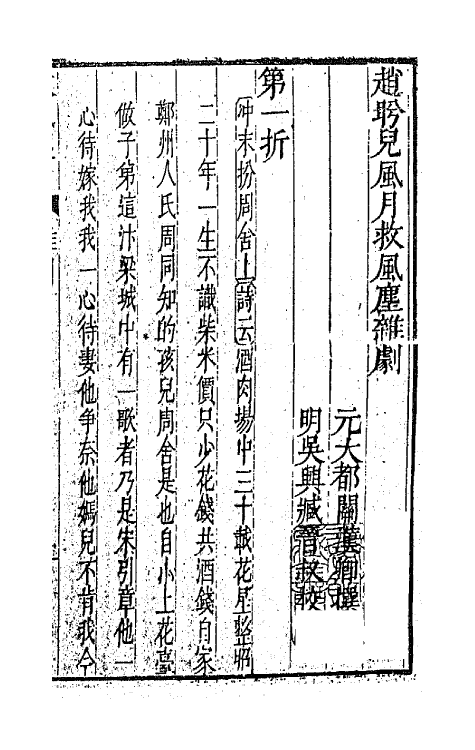 趙盼兒風月救風塵雜劇
元大都關漢卿撰
明吳興臧晉叔校
第一折
冲末扮周舍上詩云酒肉塲中三十載花星整照
二十年一生不識柴米價只少花錢共酒錢自家
鄭州人氏周同知的孩兒周舍是也自小上花臺
做子弟這汴梁城中有一歌者乃是宋引章他一
心待嫁我我一心待娶他爭奈他媽兒不肯我今